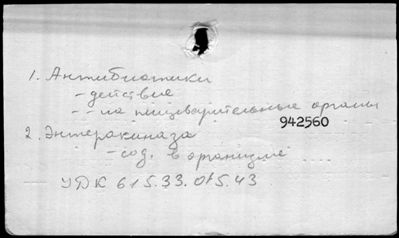 1. Антибиотики
- действие
- - на пищеварительные органы
942560
2. Энтерокиназа
- сод. в организме ....
УДК 615.33.015.43